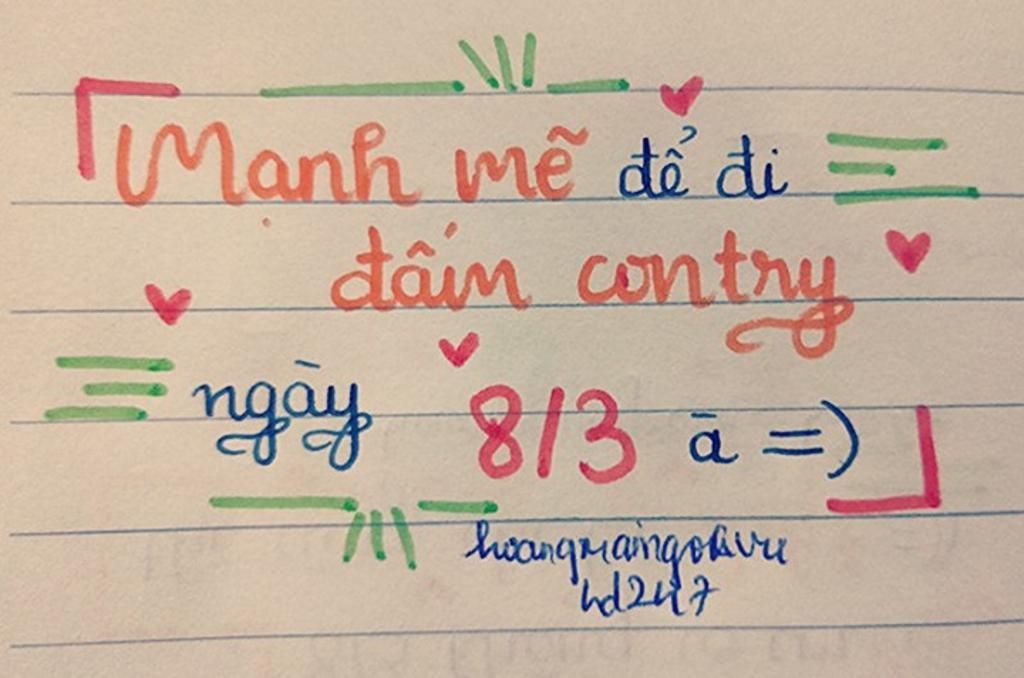 Mạnh mẽ để đi
đấm contry
ngày 8/3 ā =)
hd247